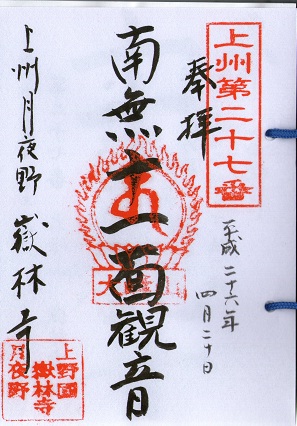 上州第二十七番
奉拝
平成二十六年
四月二十日
南無十一面観音
上州月夜野 嶽林寺
上野國
嶽林寺
月夜野